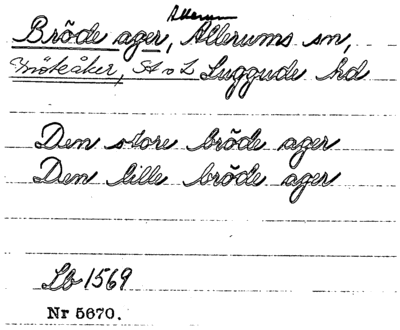 Allerum
Bröde ager, Allerums sn,
Snöteåker, St o L Luggude hd
Den store bröde ager
Den lille bröde ager
Lb 1569
Nr 5670.